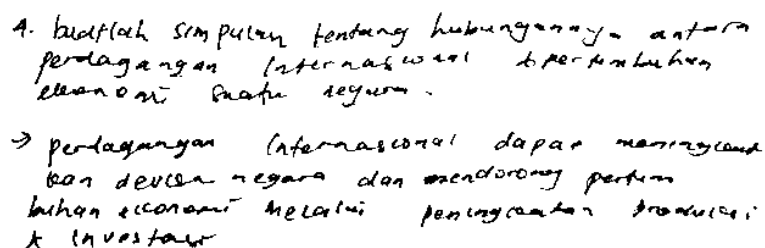 4. buatlah simpulan tentang hubungannya antara
perdagangan Internasional & pertumbuhan
ekonomi suatu negara.
→ perdagangan Internasional dapat meningkat
kan devisa negara dan mendorong pertum
buhan ekonomi melalui peningkatan produksi
& investasi